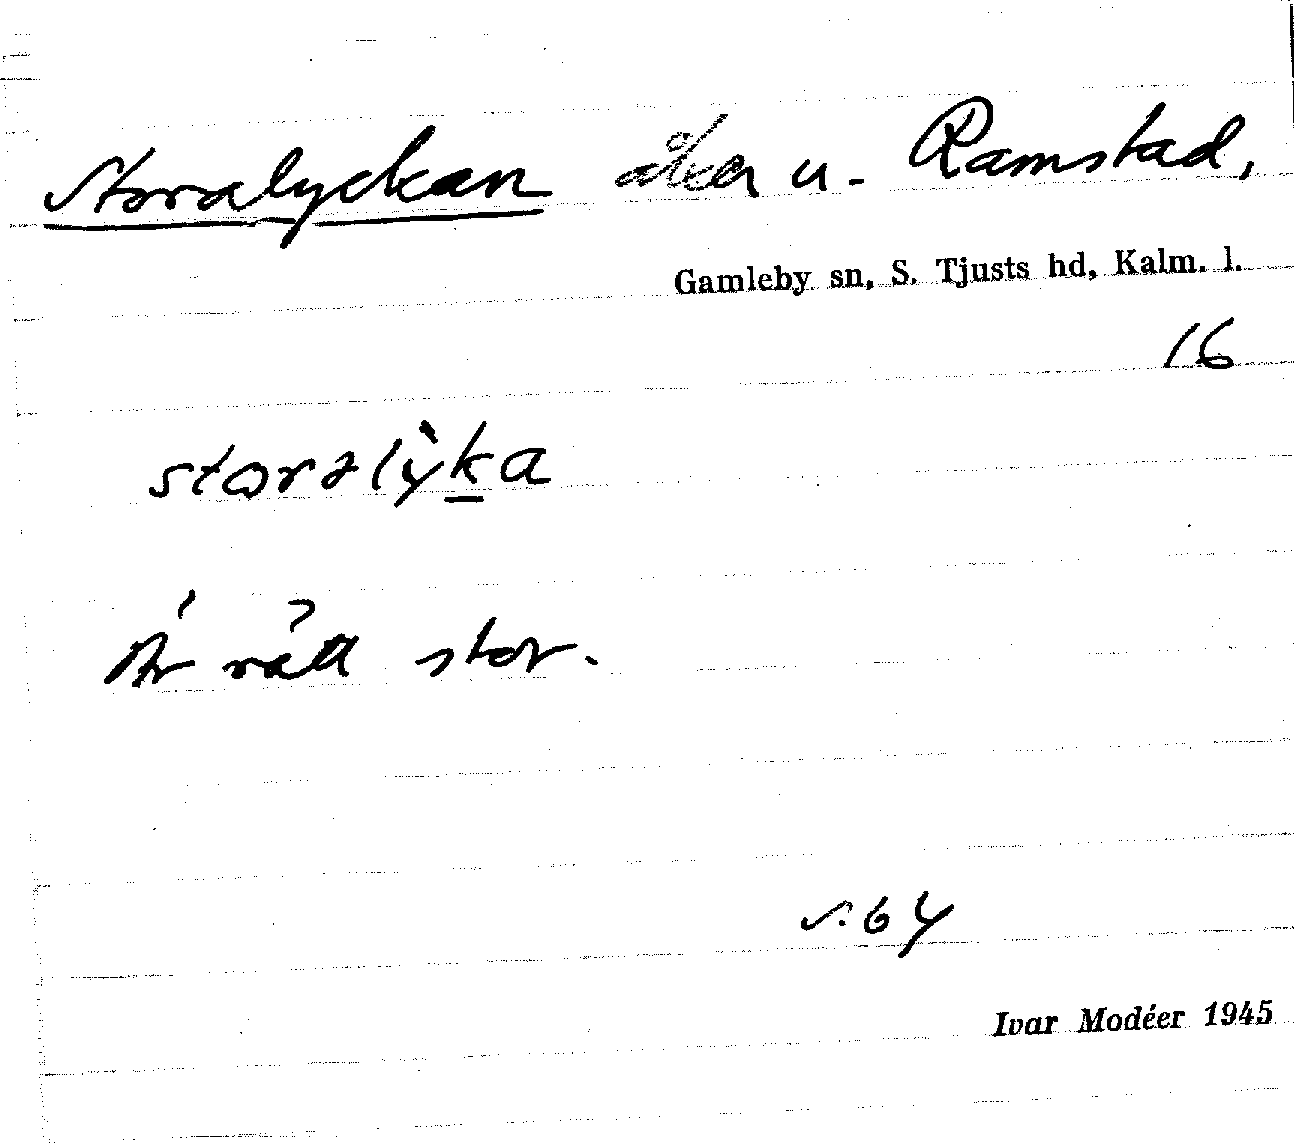 Storalyckan åker u. Ramstad,
Gamleby sn, S. Tjusts hd, Kalm. l.
16
storəlỳka
Är rätt stor.
s. 64
Ivar Modéer 1945